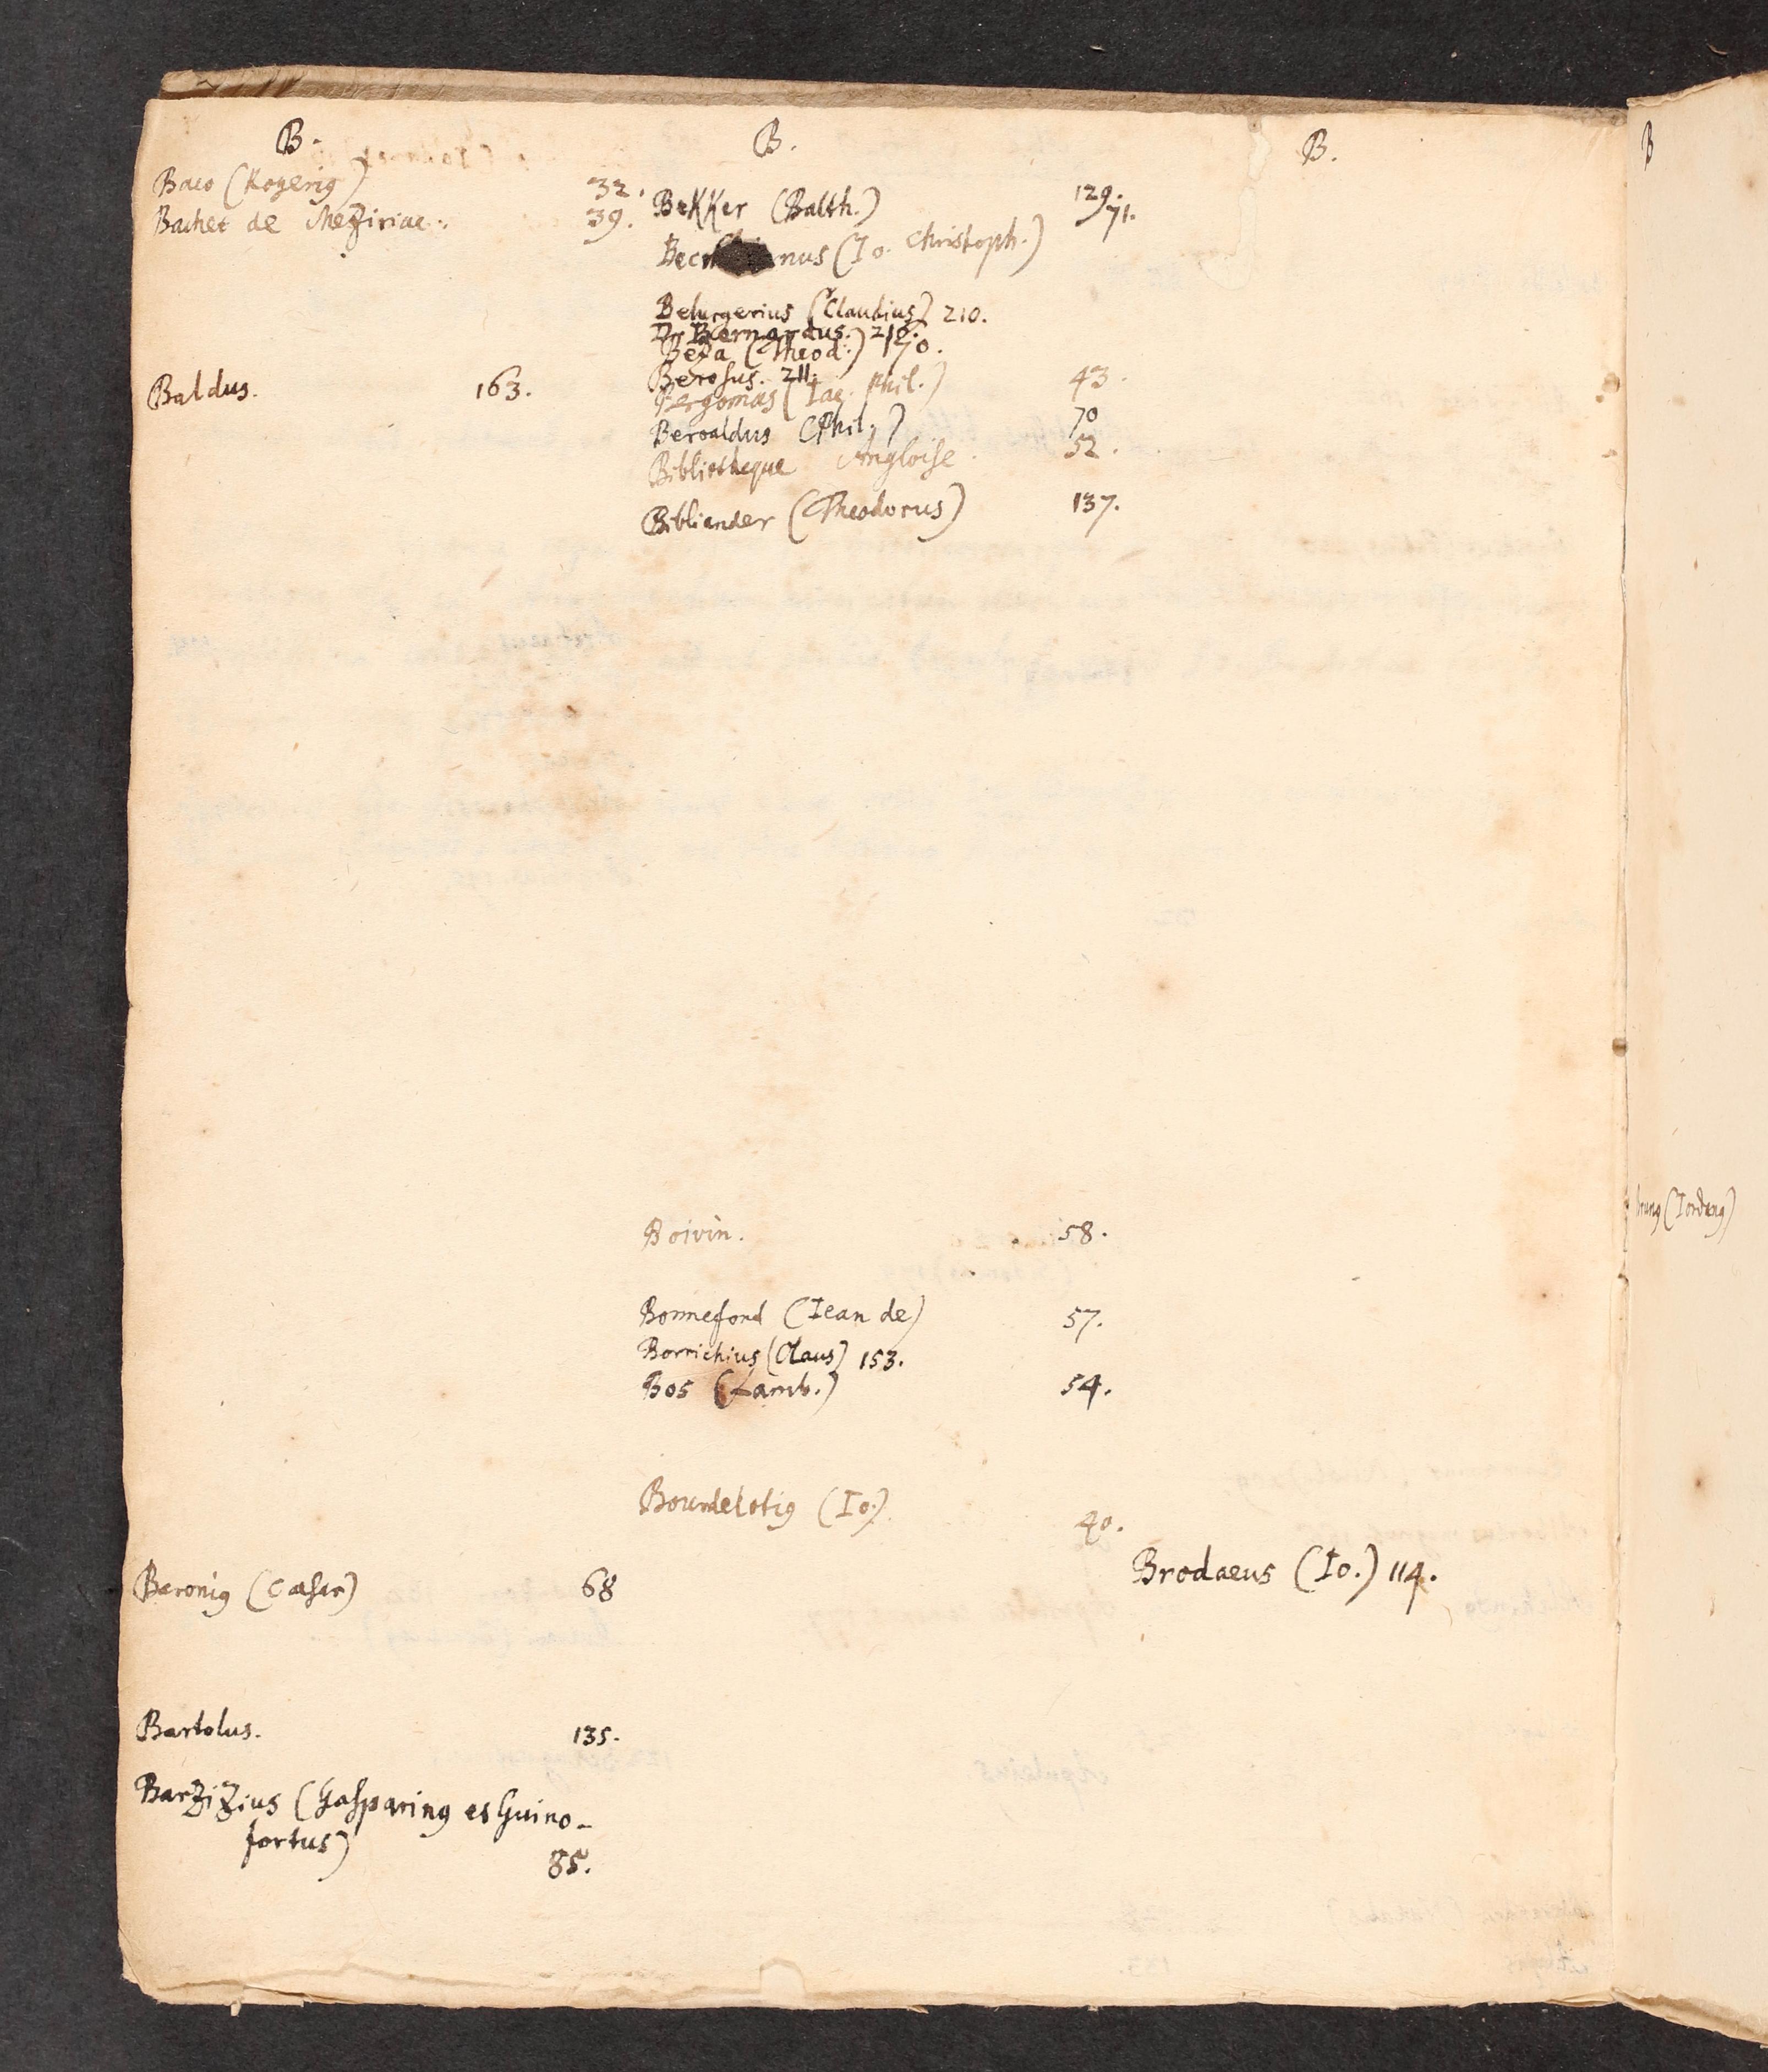 B.
Baco (Rogerig) 32.
Bachet de Meziriac. 39.
Baldus. 163.
Baronig (Caesar) 68
Bartolus. 135.
Barzizius (Gasparing et Guino-
fortus) 85.
B.
BeKKer (Balth.) 129.
(Io. Christoph.) 71.
Belurgerius (Claudius) 210.
Dr Bernardus. 210.
Beza (Theod.) 170.
Berosus. 211.
Bergomas (Iac. Phil.) 43.
Beroaldus (Phil.) 70
Bibliotheque Angloise. 52.
Bibliander (Theodorus) 137.
Boivin. 58.
Bonnefond (Iean de) 57.
Borrichius (Olaus) 153.
Bos (Lamb.) 54.
Bourdelotig (Io.) 40.
B.
Brodaeus (Io.) 114.
B
brung (Iordang)